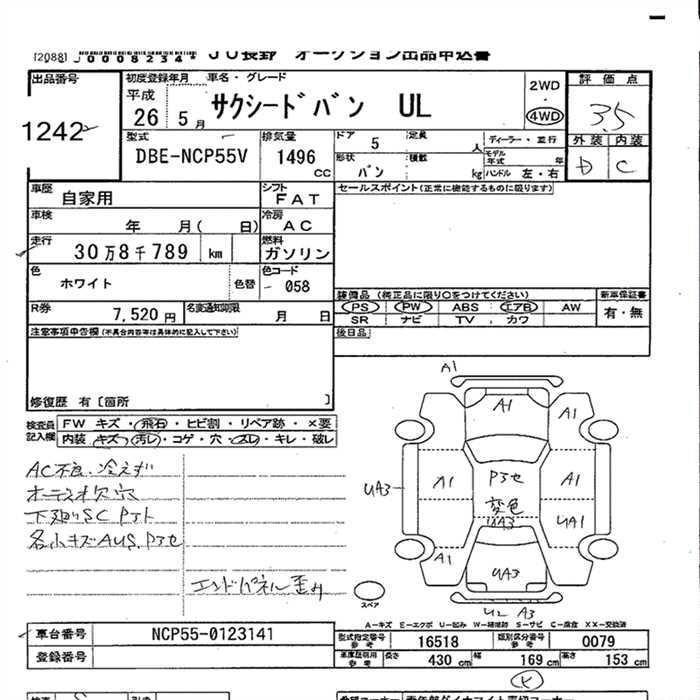 [2088] J00008234* JU長野 オークション出品申込書
出品番号 初度登録年月 車名・グレード 2WD 評価点
平成 26 5月 サクシードバン UL 4WD 3.5
1242
型式 排気量 ドア 5 定員 人 ディーラー・並行 外装 内装
DBE-NCP55V 1496 cc 形状 バン 積載 kg モデル年式 年 ハンドル 左・右 D C
車歴 自家用 シフト FAT セールスポイント(正常に機能するものに限ります)
車検 年 月( 日) 冷房 AC
走行 30万8千789 km 燃料 ガソリン
色 ホワイト 色替 色コード - 058
装備品 (純正品に限り○をつけてください) 新車保証書
R券 7,520円 名変通知期限 月 日 PS PW ABS エアB AW 有・無
SR ナビ TV カワ
注意事項申告欄(不具合内容等は具体的に記入して下さい) 後日品
修復歴 有〔箇所 〕
検査員記入欄 FW キズ・飛石・ヒビ割・リペア跡・×要
内装 キズ・汚レ・コゲ・穴・スレ・キレ・破レ
AC不良、冷えず
オーディオ欠穴
下廻りSC Pアト
各小キズAUS、Pアセ
エンドパネル歪み
A1
A1 A1
A1 Pアセ A1
UA3 変色
UA3 UA1
A1 UA3
U2 A3
スペア
A-キズ E-エクボ U-凹み W-補修跡 S-サビ C-腐食 XX-交換済
車台番号 NCP55-0123141 型式指定番号 参考 16518 類別区分番号 参考 0079
登録番号 車庫証明用 参考 長さ 430 cm 幅 169 cm 高さ 153 cm
K